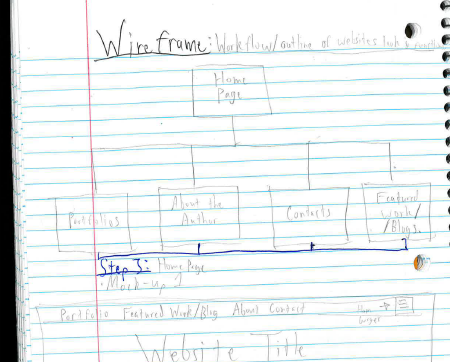 Wireframe: Workflow/outline of websites look &
Home
Page
Portfolios
About the
Author
Contacts
Featured
Work/
/Blogs.
Step 3: Home Page
·Mock-up
Portfolio Featured Work/Blog About Contact
Website Title